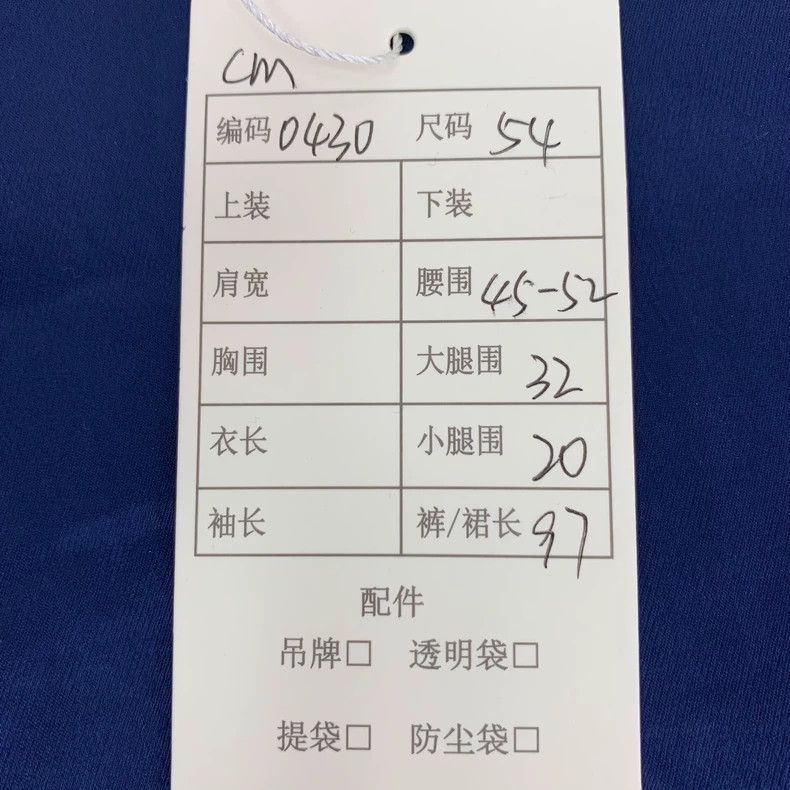 CM
编码 0430 尺码 54
上装 下装
肩宽 腰围 45-52
胸围 大腿围 32
衣长 小腿围 20
袖长 裤/裙长 97
配件
吊牌□ 透明袋□
提袋□ 防尘袋□